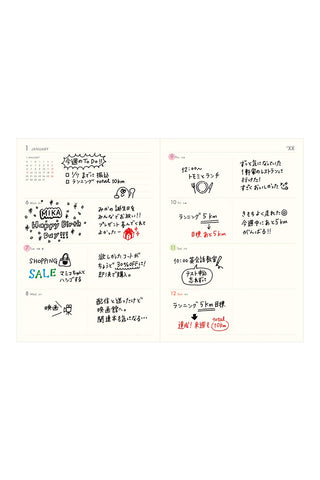 1 JANUARY
'XX
今週のTo Do!!
□ 1/7 までに振込
□ ランニング total 10km
6
MIKA
Happy Birth
Day!!!
みかの誕生日を
みんなでお祝い!!
プレゼント喜んでくれて
よかったー
7
SHOPPING
SALE
マミコちゃんと
ハシゴする
欲しかったコートが
ちょうど30%OFFに!
即決で購入。
8
映画
配信と迷ったけど
映画館へ。
関連本も気になる…
9
12:00〜
トモミとランチ
ずっと気になっていた
! 野菜のレストランへ
行けた!
すごくおいしかった
10
ランニング 5km
目標 あと5km
きもちよく走れた
今週中にあと5km
がんばる!!
11
10:00 英会話教室
テスト
忘れずに
12
ランニング 5km 目標
達成! 来週も total 10km